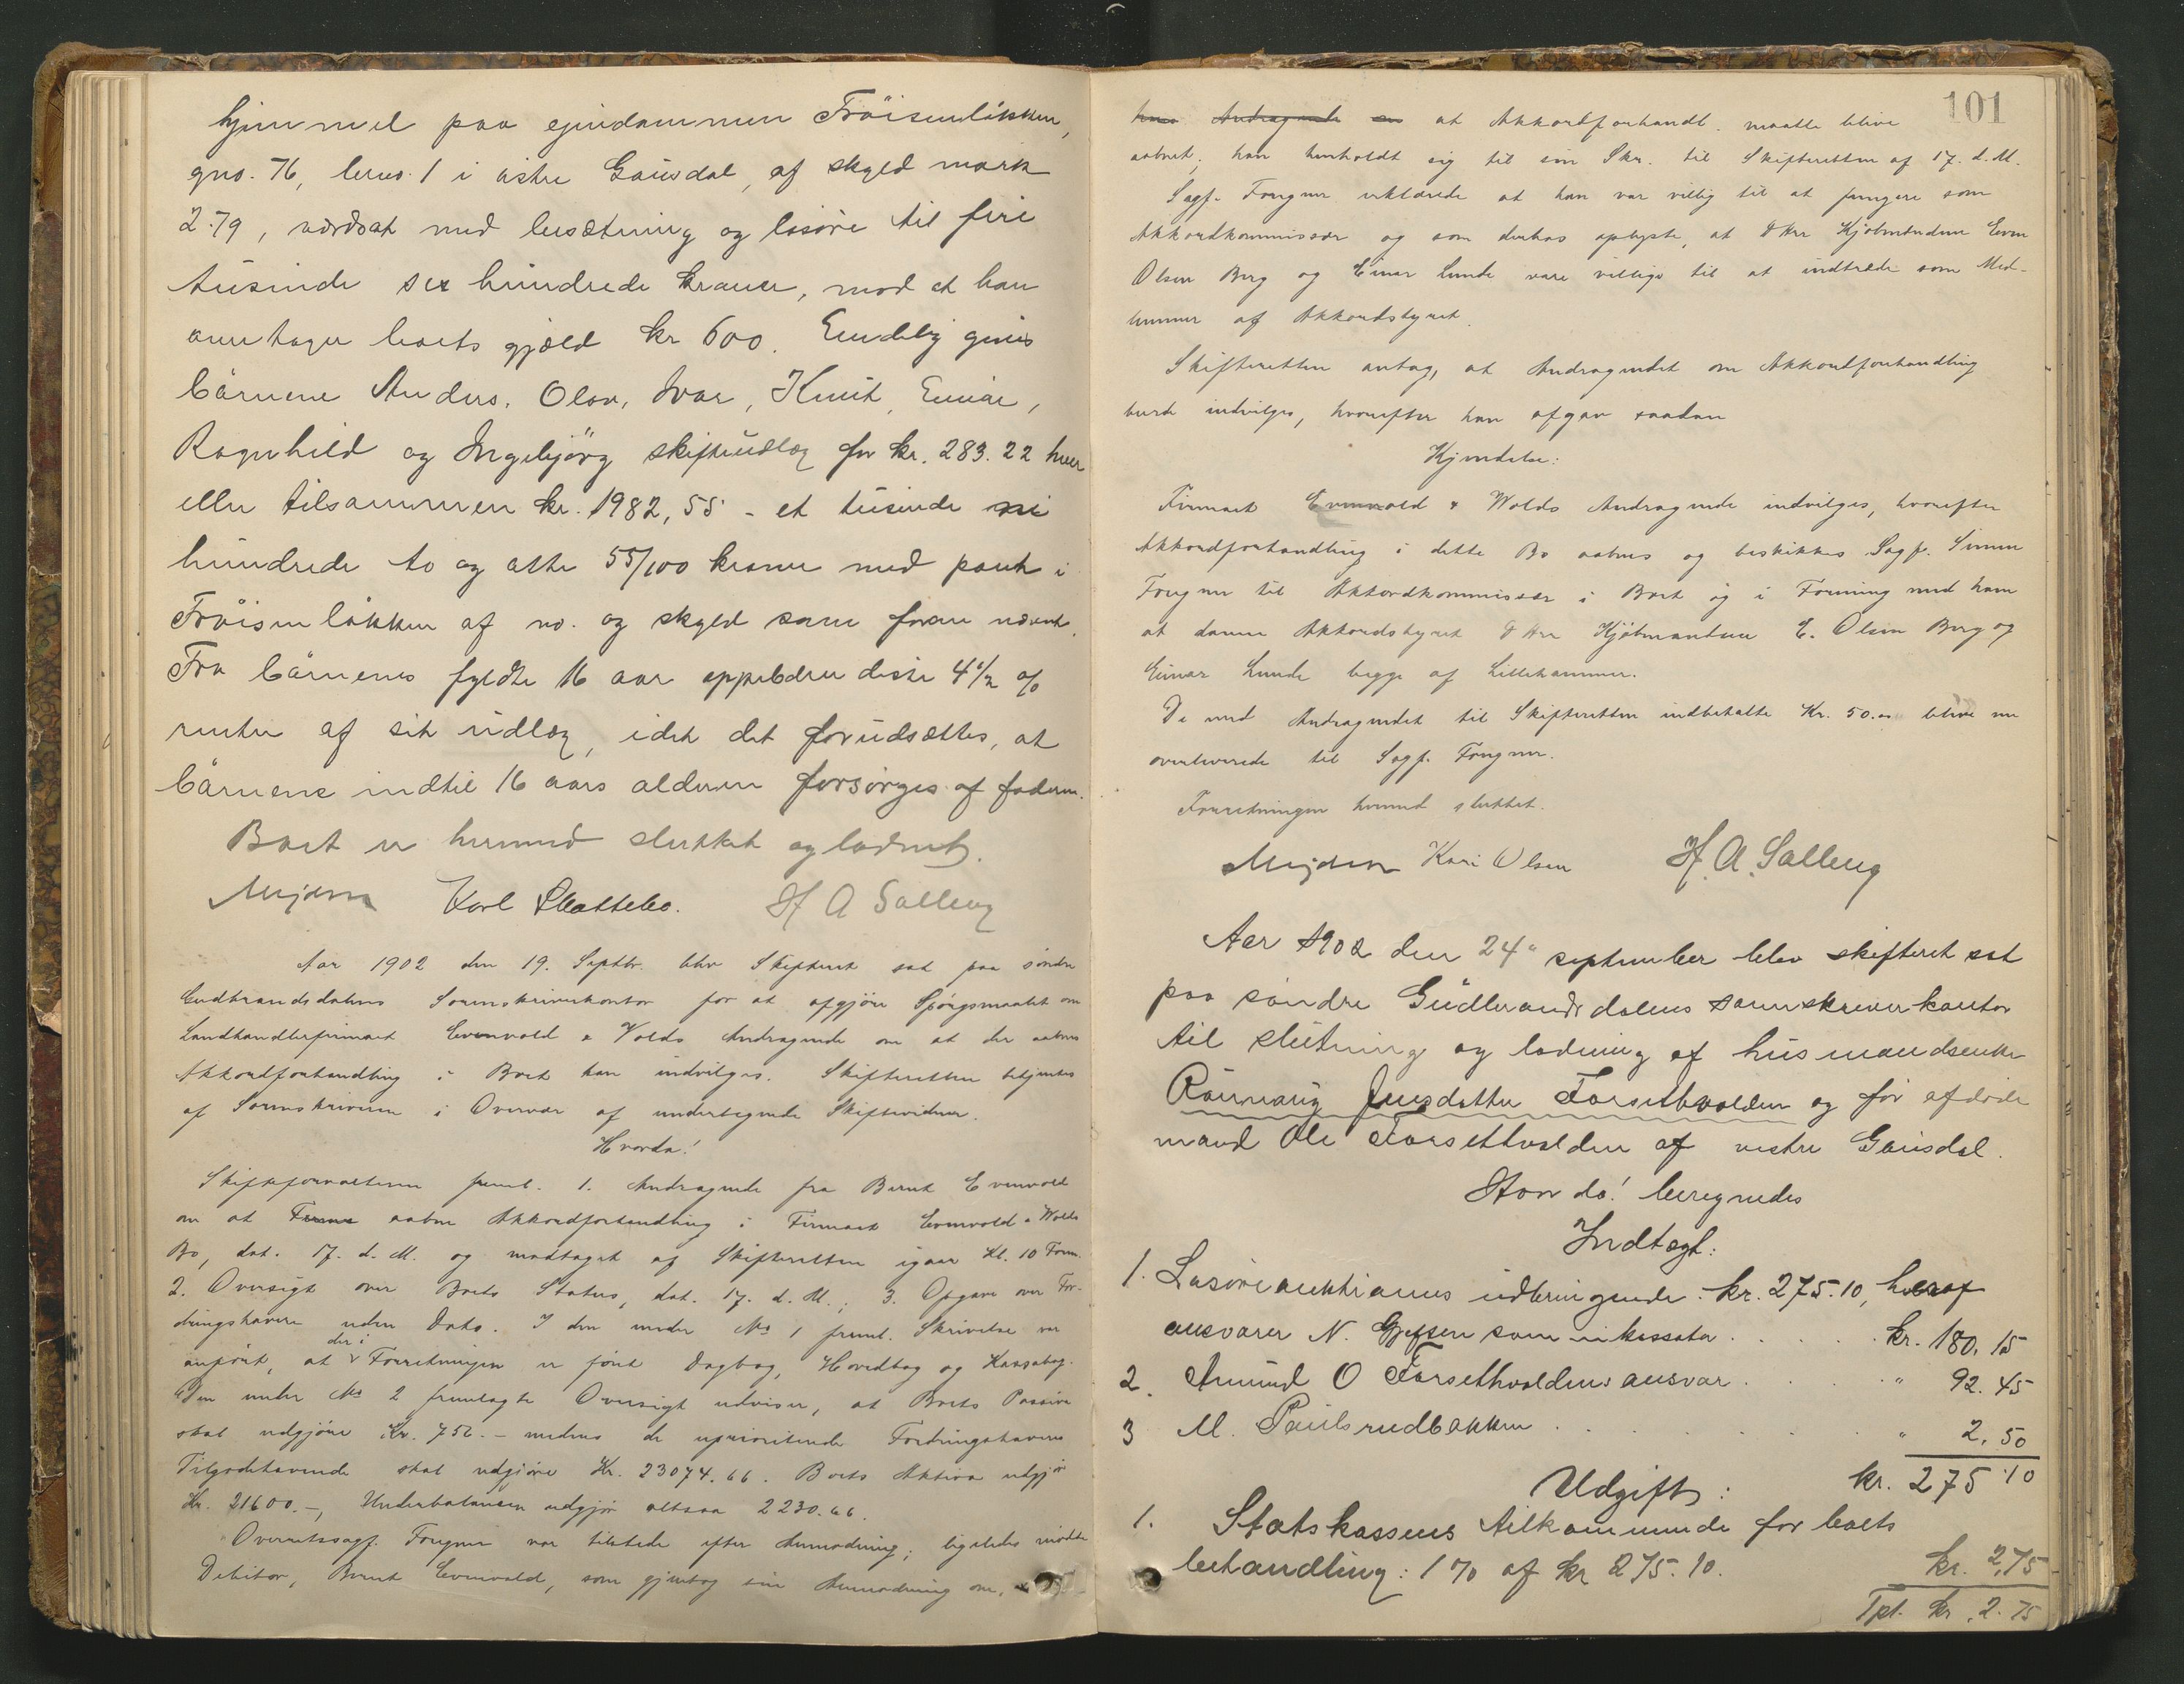 hjemmel paa ejendommen Fröisenlökken,
gno. 76, brno. 1 i östre Gausdal, af skyld mark
2.79, værdsat med besætning og lösöre til fire
tusinde sex hundrede kroner, mod at han
overtager boets gjæld kr 600. Endelig gives
börnene Anders, Olav, Ivar, Knut, Einar,
Ragnhild og Ingebjörg skifteudlæg for kr. 283.22 hver
eller tilsammen kr. 1982,55 - et tusinde ni
hundrede to og otti 55/100 kroner med pant i
Fröisenlökken af no. og skyld som foran nævnt.
Fra börnenes fyldte 16 aar oppebærer disse 4½ %
renter af sit udlæg, idet det forudsættes, at
börnene indtil 16 aars alderen forsörges af faderen.
Boet er hermed sluttet og lodnet.
Mejdell Karl Skattebo. H A Salling
Aar 1902 den 19. Septbr. blev Skifteret sat paa söndre
Gudbrandsdalens Sorenskriverkontor for at afgjöre Spörgsmaalet om
Landhandlerfirmaet Evenvold & Volds Andragende om at der aabnes
Akkordforhandling i Boet kan indvilges. Skifteretten betjentes
af Sorenskriveren i Overvær af undertegnede Skiftevidner.
Hvorda!
Skifteforvalteren freml. 1. Andragende fra Bernt Evenvold
om at Firma aabne Akkordforhandling i Firmaet Evenvold & Wolds
Bo, dat. 17. d. M. og modtaget af Skifteretten igaar Kl. 10 Form.
2. Oversigt over Boets Status, dat. 17. d. M.; 3. Opgave over For-
dringshavere uden Dato. I den under No 1 freml. Skrivelse var
anfört, at der i Forretningen er fört Dagbog, Hovedbog og Kassabog.
Den under No 2 fremlagte Oversigt udviser, at Boets Passiva
skal udgjöre Kr. 756.- medens de uprioriterede Fordringshaveres
Tilgodehavende skal udgjöre Kr. 23074.66. Boets Aktiva udgjör
Kr. 21600.-, Underbalancen udgjör altsaa 2230.66.
Overretssagf. Fougner var tilstede efter Anmodning; ligeledes mödte
Debitor, Bernt Evenvold, som gjentog sin Anmodning om,
101
hans Andragende om at Akkordforhandl. maatte blive
aabnet; han henholdt sig til sin Skr. til Skifteretten af 17. d. M.
Sagf. Fougner erklærede at han var villig til at fungere som
Akkordkommissær og som derhos oplyste, at Hrr Kjöbmændene Even
Olsen Berg og Einar Lunde vare villige til at indtræde som Med-
lemmer af Akkordstyret.
Skifteretten antog, at Andragendet om Akkordforhandling
burde indvilges, hvorefter han afgav saadan
Kjendelse:
Firmaet Evenvold & Wolds Andragende indvilges, hvorefter
Akkordforhandling i dette Bo aabnes og beskikkes Sagf. Simen
Fougner til Akkordkommissær i Boet og i Forening med ham
at danne Akkordstyret Hrr Kjöbmændene E. Olsen Berg og
Einar Lunde begge af Lillehammer.
De med Andragendet til Skifteretten indbetalte Kr. 50.00 blive nu
overleverede til Sagf. Fougner.
Forretningen hermed sluttet.
Mejdell Kari Olsen H. A. Salling
Aar 1902 den 24de september blev skifteret sat
paa söndre Gudbrandsdalens sorenskriverkontor
til slutning og lodning af husmandsenke
Rönnaug Jensdatter Forsethvolden og för afdöde
mand Ole Forsethvolden af vestre Gausdal.
Hvorda! beregnedes
Indtægt:
1. Lösöreauktionens udbringende: kr. 275.10, heraf
ansvarer N. Gjefsen som inkassator . . . . . kr. 180.15
2. Amund O Forsethvoldens ansvar . . . . " 92.45
3 M. Paulsrudbakken . . . . . . " 2.50
kr. 275.10
Udgift:
1. Statskassens tilkommende for boets
behandling: 1% af kr 275.10. kr. 2,75
Tpt. kr. 2.75